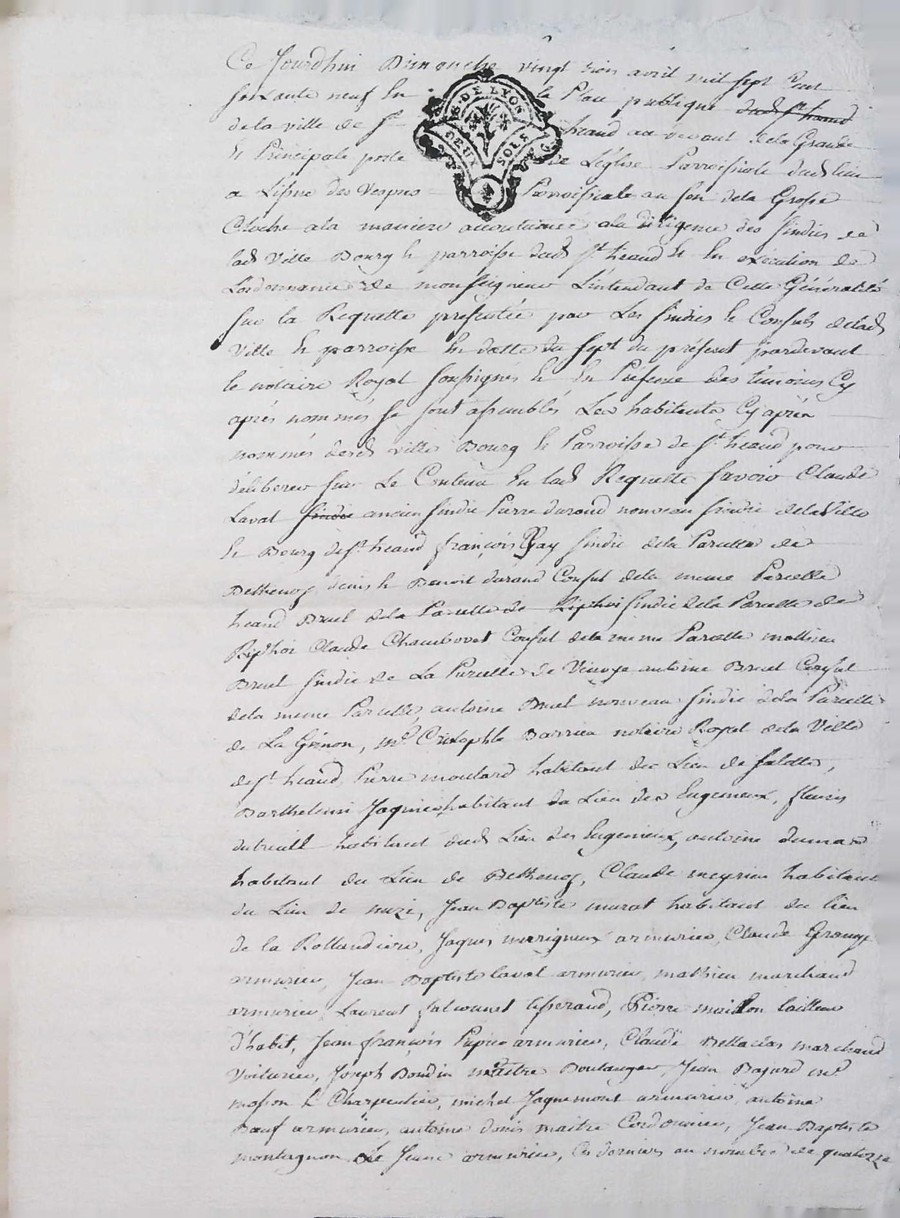 Ce Jourdhui Dimanche vingt trois avril mil sept Cent
soixante neuf En la Place publique dud. St. heand
G. DE LYON
DEUX SOLS
de la ville de St. heand au devant de la Grande
et Principale porte de L'église Parroissiale dud. lieu
a L'issue des Vespres Parroissiale au son de la Grosse
Cloche a la maniere accoutumée a la diligence des sindics de
lad. Ville Bourg et parroisse dud. St. heand et En execution de
Lordonnance de monseigneur L'intendant de Cette Généralité
sur la Requette présentée par Les sindics et Consuls de lad.
Ville et parroisse En datte du sept du présent pardevant
le notaire Royal soussignés et En Présence des témoins Cy
après nommés se sont assemblés Les habitants Cy après
nommés de lad. ville Bourg et Parroisse de St. heand pour
déliberer sur Le Contenu En lad. Requette savoir Claude
Laval sindic ancien sindic Pierre durand nouveau sindic de la Ville
et Bourg de St. heand françois Gay sindic de la Parcelle de
denis et Benoit durand Consul de la meme Parcelle
heand Bruel de la Parcelle de Riphoi sindic de la Parcelle de
Riphoi Claude Chambovet Consul de la meme Parcelle mathieu
Bruel sindic de La Parcelle de antoine Bruel Consul
de la meme Parcelle, antoine Bruel nouveau sindic de la Parcelle
de La Gimon, me. Cristophle Barrieu notaire Royal de la Ville
de St. heand, Pierre moulard habitant du Lieu de
Barthelemi Jaquier habitant du Lieu des Eugenieux, fleuris
dubreuil habitant dud. Lieu des Eugenieux, antoine dumas
habitant du Lieu de Claude meyrieu habitant
du Lieu de Jean Baptiste murat habitant du lieu
de la Rollandiere, Jaques merigneux armurier, Claude
armurier, Jean Baptiste laval armurier, mathieu marchand
armurier, Laurent Pierre tailleur
d'habit, Jean françois Papier armurier, Claude marchand
Voiturier, Joseph Boudin maitre Boulanger, Jean Bajard me.
masson et Charpentier, michel Jaquemont armurier, antoine
armurier, antoine denis maitre Cordonnier, Jean Baptiste
montagnon Le Jeune armurier, Ces derniers au nombre de quatorze